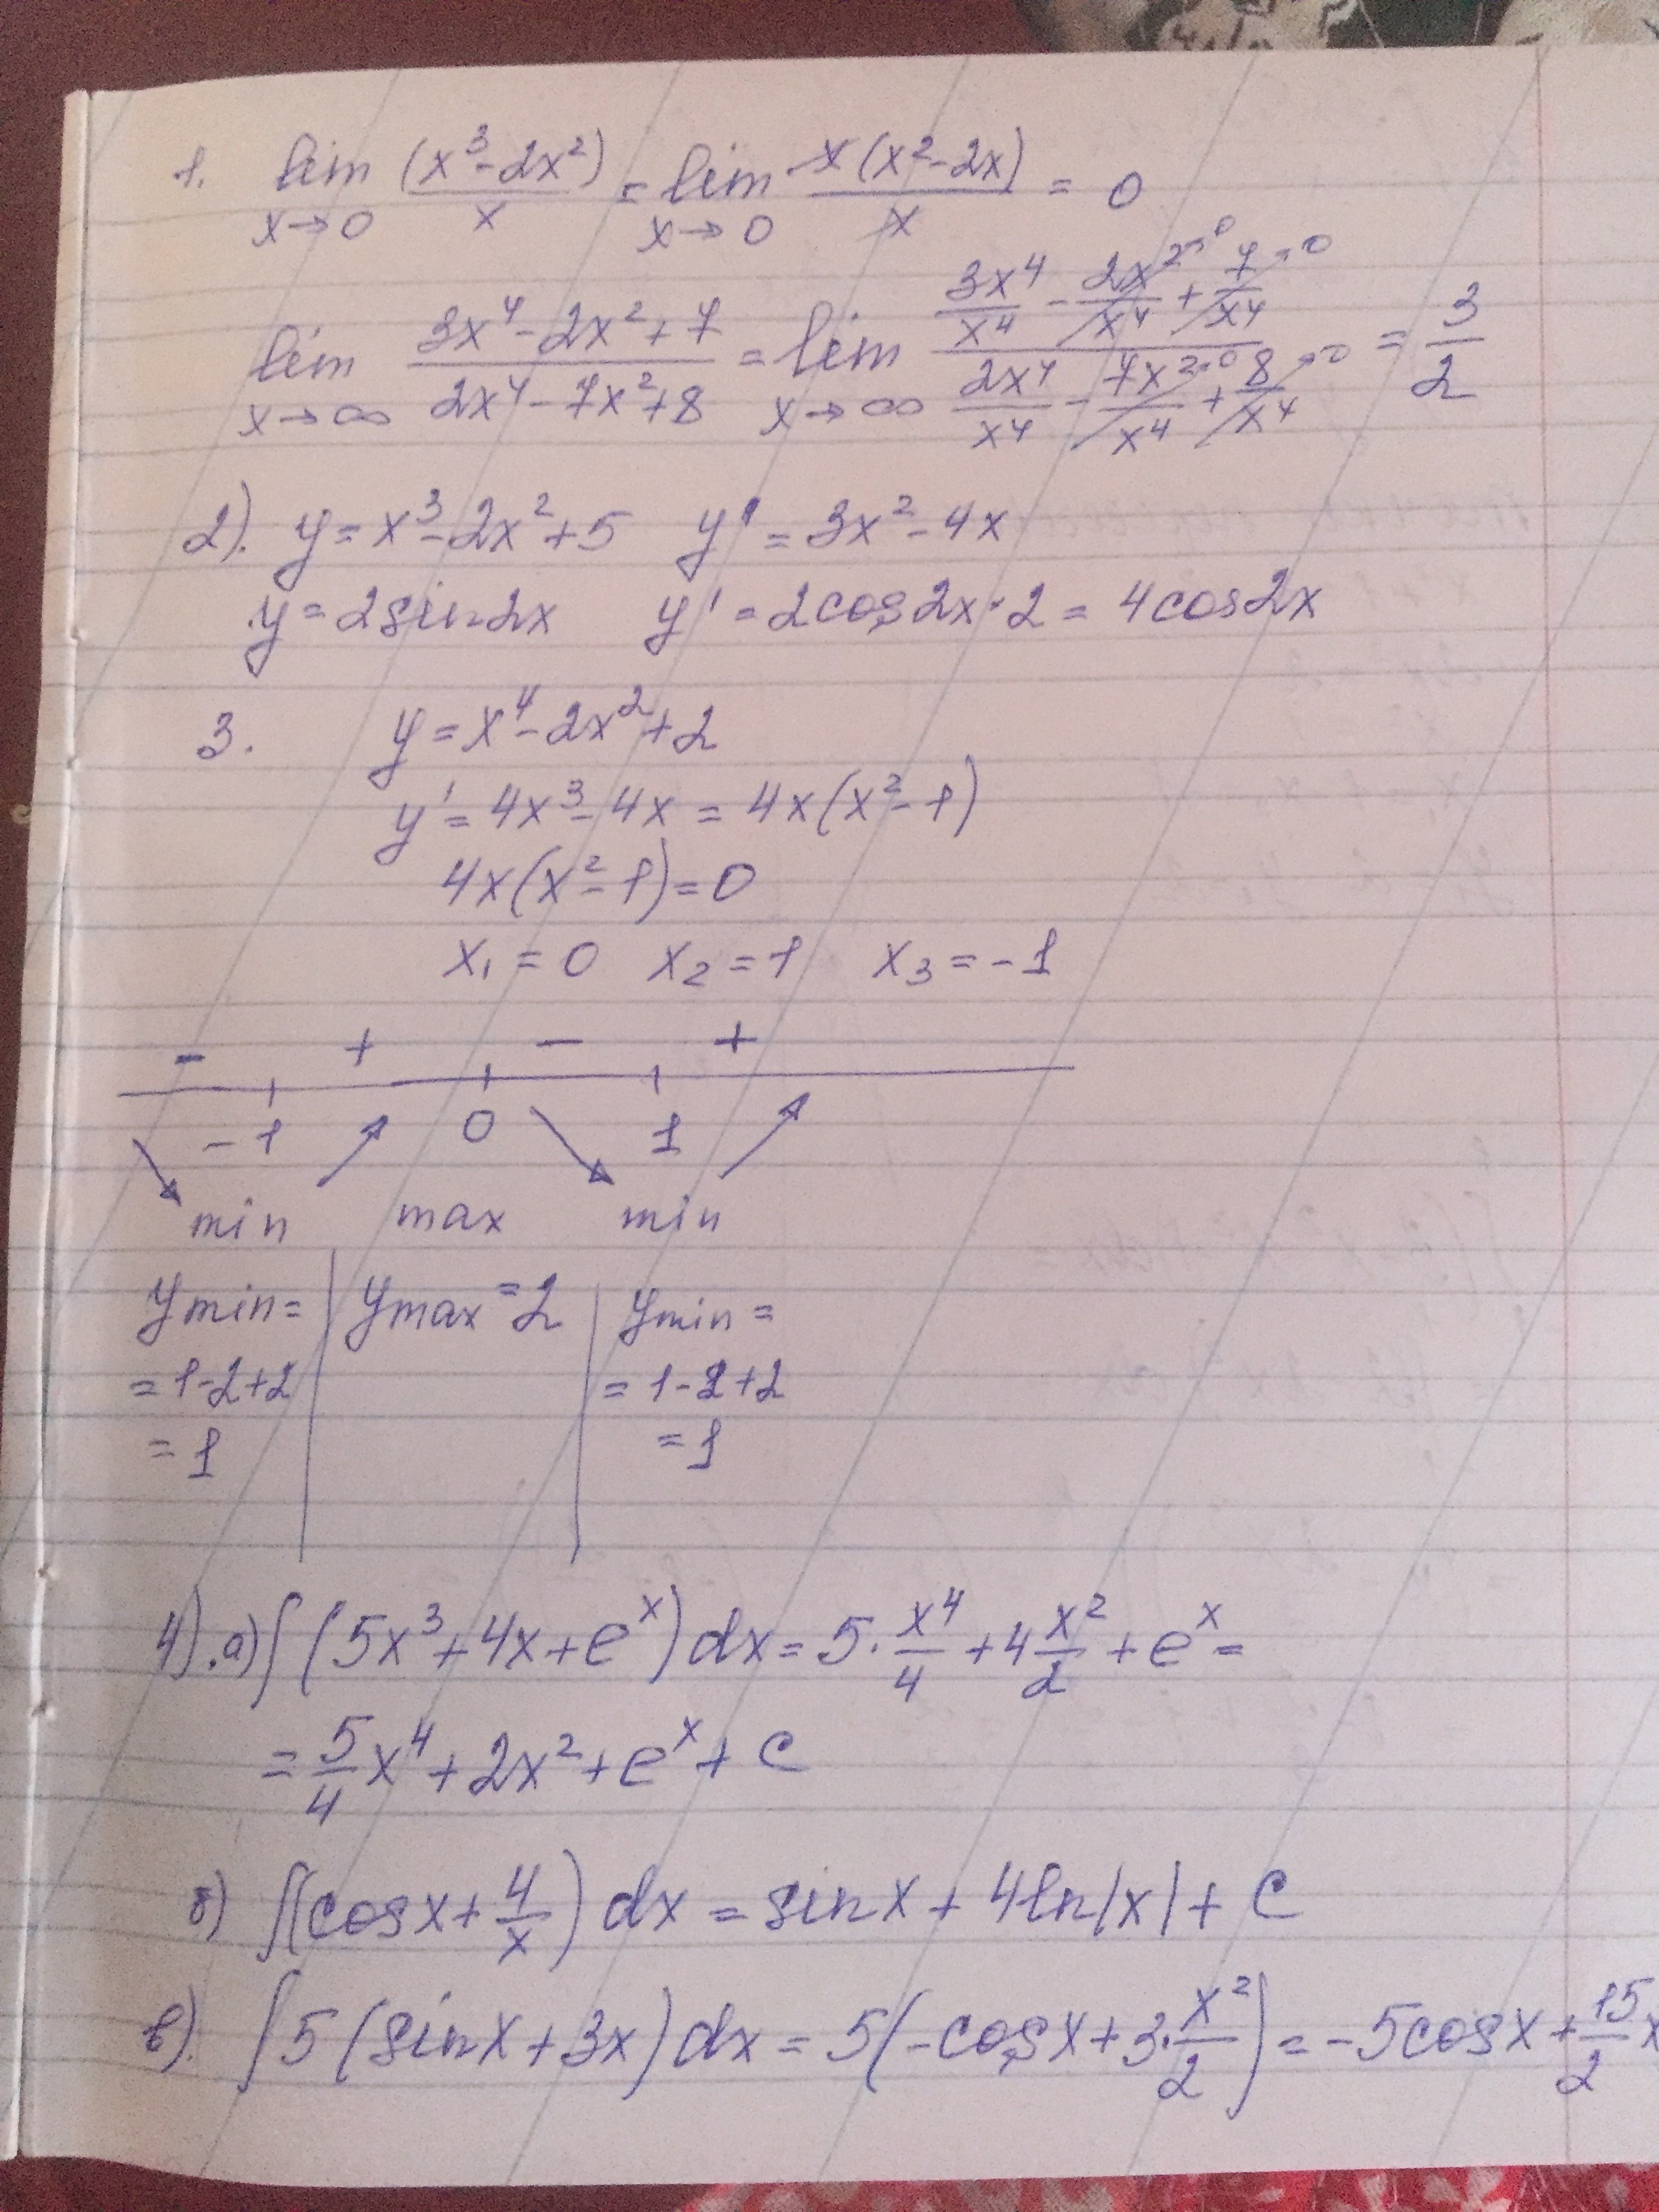 1. lim x→0 (x³-2x²)/x = lim x→0 x(x²-2x)/x = 0
lim x→∞ (3x⁴-2x²+7)/(2x⁴-7x²+8) = lim x→∞ (3x⁴/x⁴ - 2x²/x⁴→0 + 7/x⁴→0)/(2x⁴/x⁴ - 7x²/x⁴→0 + 8/x⁴→0) = 3/2
2). y=x³-2x²+5 y' = 3x²-4x
y=2sin2x y'=2cos2x·2 = 4cos2x
3. y=x⁴-2x²+2
y'=4x³-4x = 4x(x²-1)
4x(x²-1)=0
x₁=0 x₂=1 x₃=-1
- + - +
-1 0 1
min max min
ymin= ymax=2 ymin=
=1-2+2 =1-2+2
=1 =1
4).a) ∫(5x³+4x+eˣ)dx = 5·x⁴/4 + 4x²/2 + eˣ =
= 5/4x⁴+2x²+eˣ+c
б) ∫(cosx+4/x)dx = sinx+4ln|x|+c
в). ∫5(sinx+3x)dx = 5(-cosx+3·x²/2) = -5cosx+15/2x